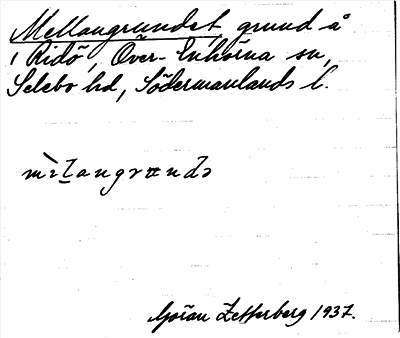 Mellangrundet, grund å
i Ridö, Över-Enhörna sn,
Selebo hd, Södermanlands l.
Göran Zetterberg 1937.